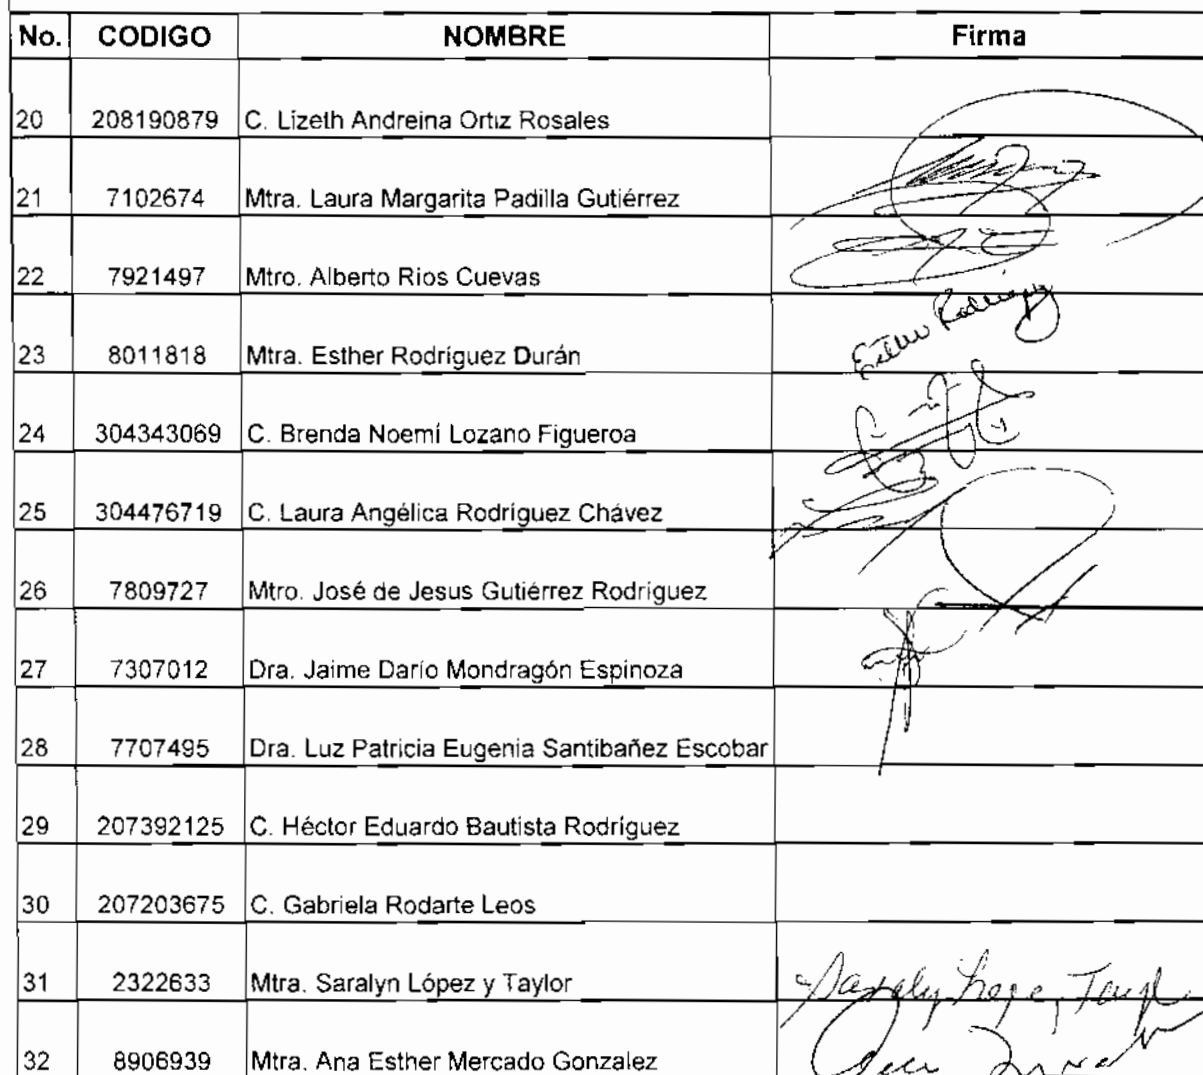 No. CODIGO NOMBRE Firma
20 208190879 C. Lizeth Andreina Ortiz Rosales
21 7102674 Mtra. Laura Margarita Padilla Gutiérrez
22 7921497 Mtro. Alberto Rios Cuevas
23 8011818 Mtra. Esther Rodríguez Durán Esther Rodríguez
24 304343069 C. Brenda Noemí Lozano Figueroa
25 304476719 C. Laura Angélica Rodríguez Chávez
26 7809727 Mtro. José de Jesus Gutiérrez Rodríguez
27 7307012 Dra. Jaime Darío Mondragón Espinoza
28 7707495 Dra. Luz Patricia Eugenia Santibañez Escobar
29 207392125 C. Héctor Eduardo Bautista Rodríguez
30 207203675 C. Gabriela Rodarte Leos
31 2322633 Mtra. Saralyn López y Taylor
32 8906939 Mtra. Ana Esther Mercado Gonzalez